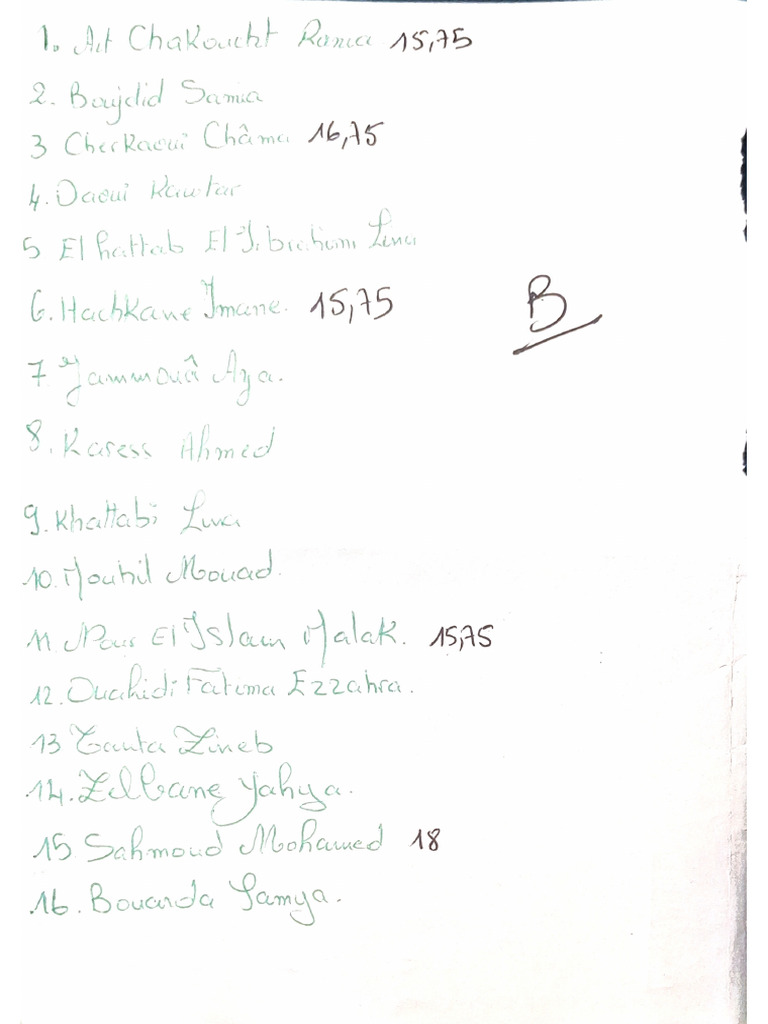 1. Ait Chakoucht Rania 15,75
2. Boujdid Samia
3 Cherkaoui Châma 16,75
4. Daoui Kawtar
5 El hattab El Ibrahimi Lina
6. Hachkane Imane. 15,75
B
7 Jammouâ Aya.
8. Karess Ahmed
9. Khattabi Lina
10. Mouhil Mouad.
11. Nour El Islam Malak. 15,75
12. Ouahidi Fatima Ezzahra.
13 Tauta Zineb
14. Zelbane Yahya.
15 Sahmoud Mohamed 18
16. Bouarda Samya.